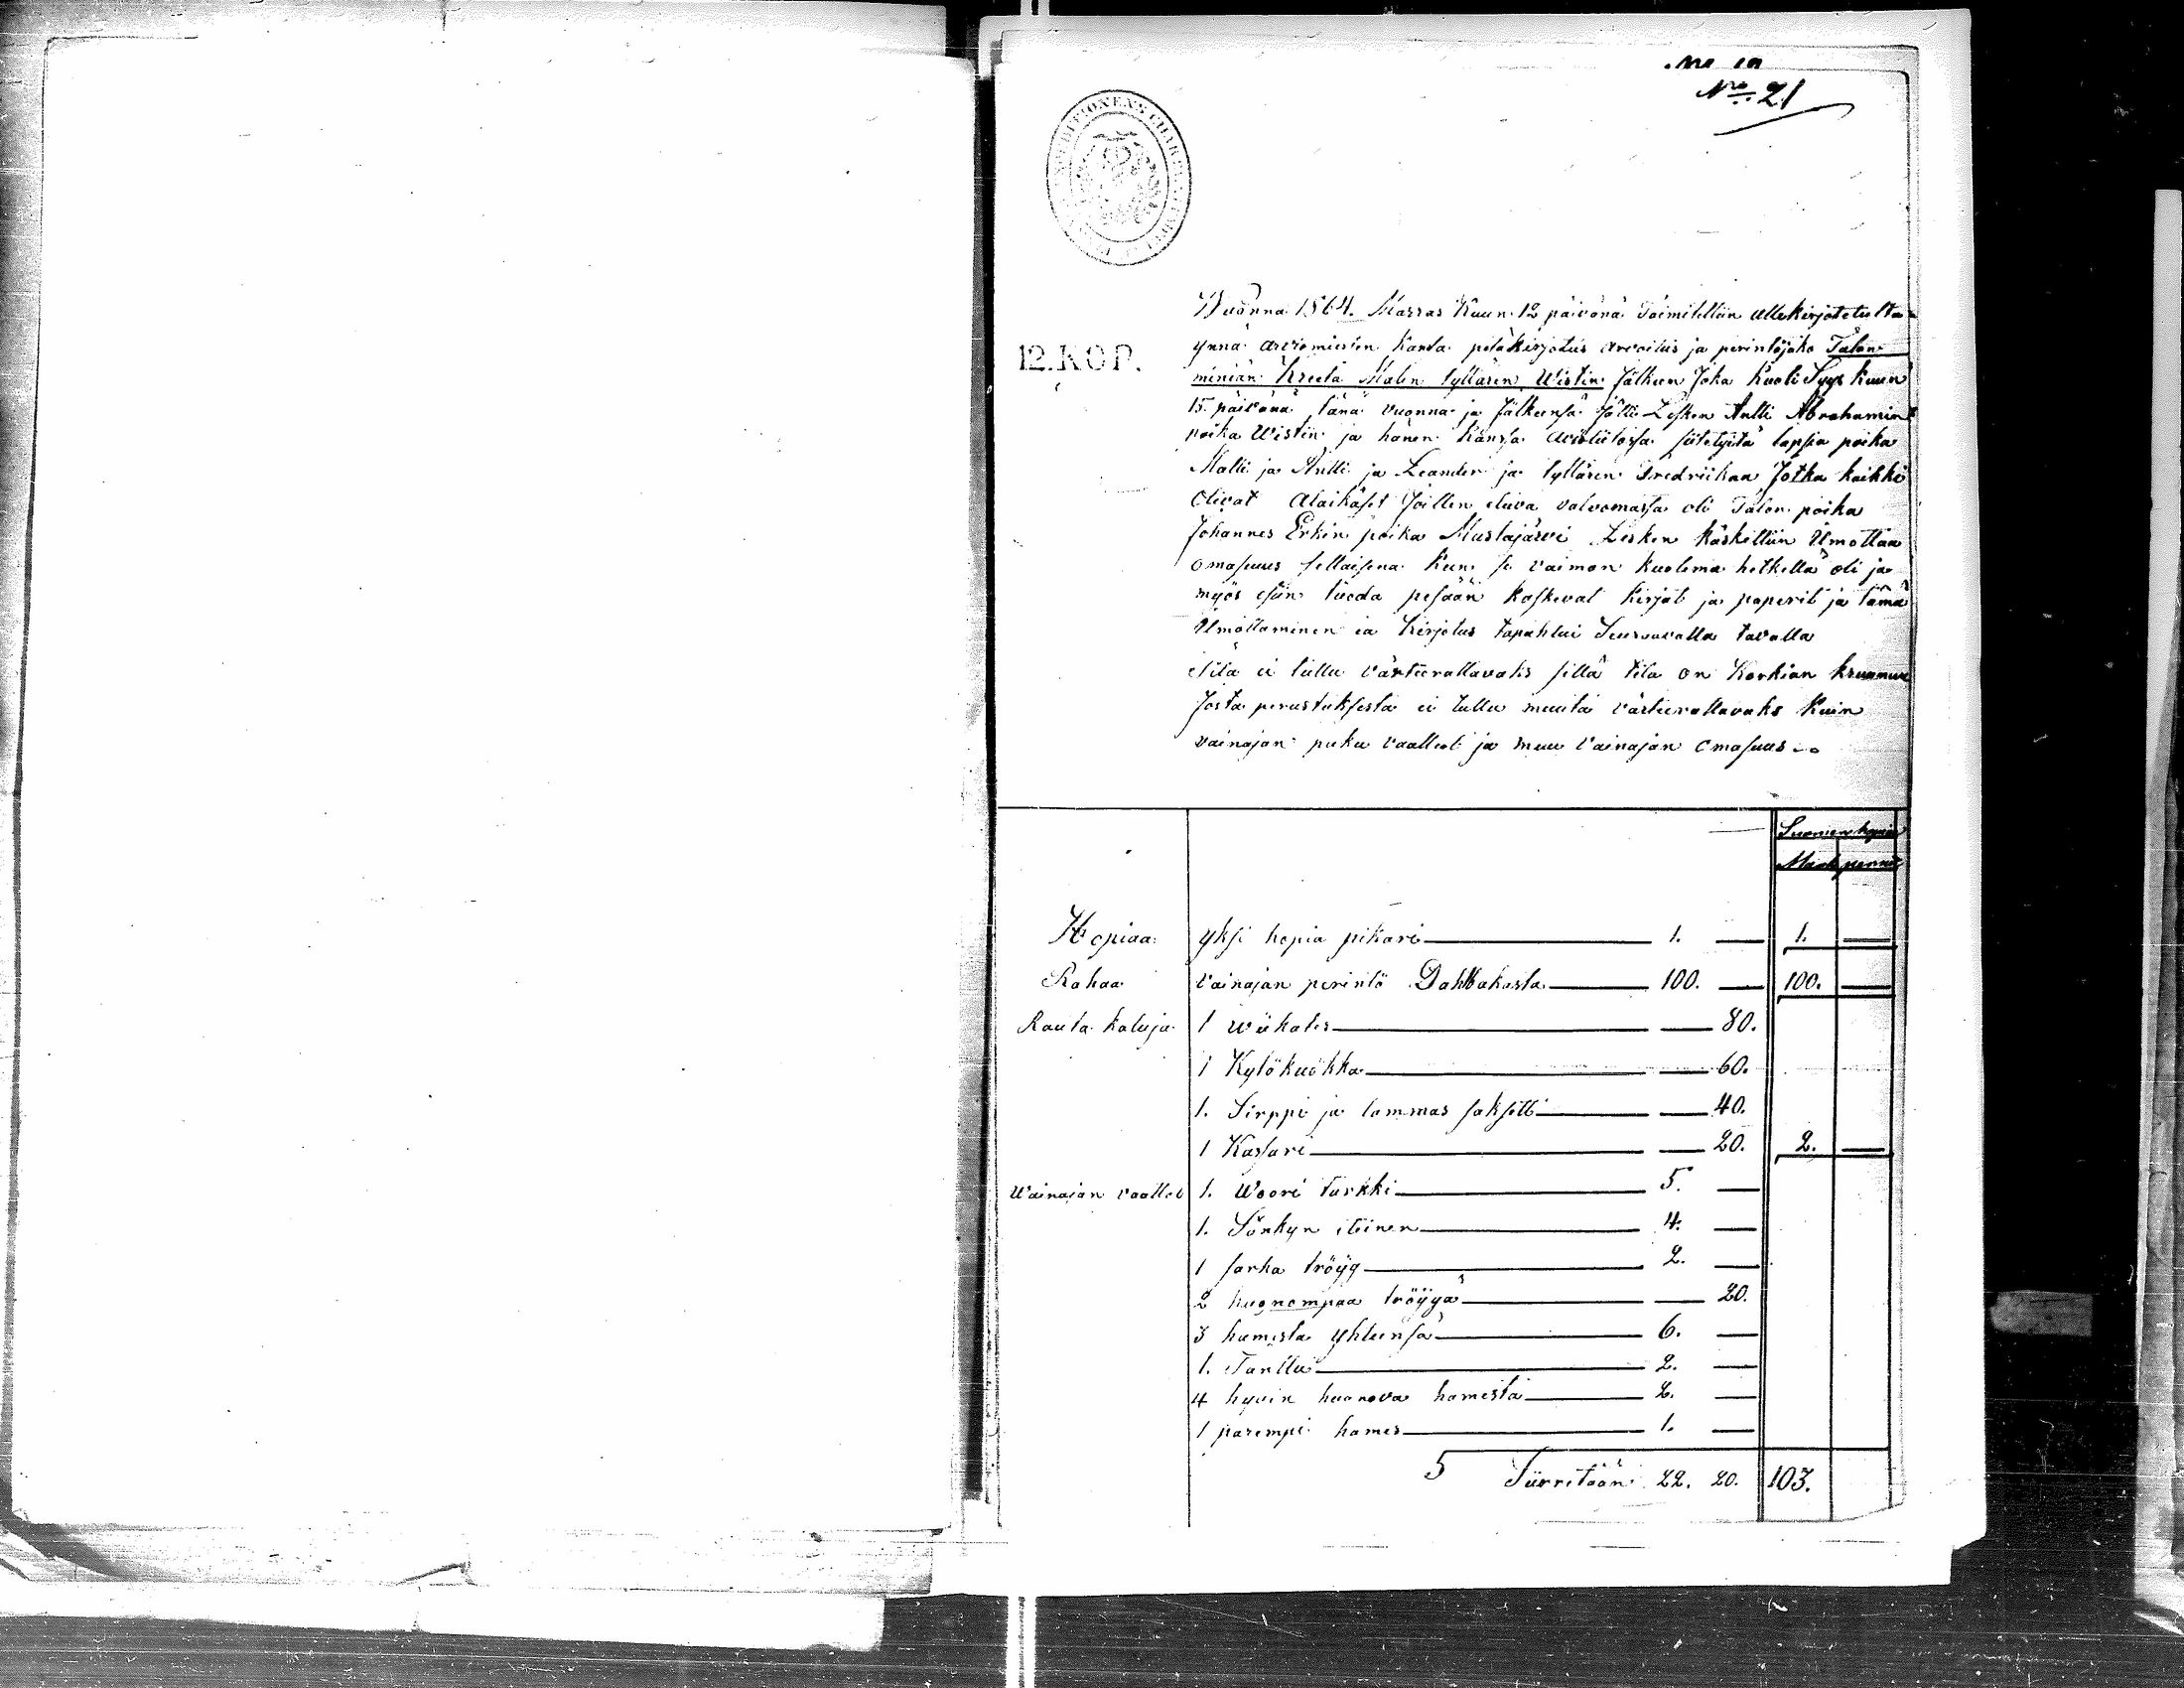 No 21
12. KOP.
Wuonna 1864. Marras Kuun 12 päivänä Toimitettiin allekirjotetulta
ynnä arviomiesten kansa pesäkirjotus arvoitus ja perintöjako Talon
miniän Kreeta Matin tyttären Wistin Jälkeen Joka kuoli Syys kuun
15. päivänä tänä vuonna ja Jälkeensä Jätti Lesken Antti Abrahamin
poika Wistin ja hänen kansa avioliitossa siitetyitä lapsia poika
Matti ja Antti ja Leander ja tyttären Fredriikan Jotka kaikki
Olivat Alaikäset Joitten etuva valvomassa oli Talon poika
Johannes Erkin poika Mustajärvi Lesken käskettiin Ilmottaa
omasuus sellaisena kun se vaimon kuolema hetkellä oli ja
myös esiin tuoda pesään koskevat kirjat ja paperit ja tämä
Ilmottaminen ia kirjotus tapahtui Seuraavalla tavalla
Tila ei tullu värteerattavaks sillä tila on Korkian kruunun
Josta perustuksesta ei tullu muuta värteerattavaks kuin
vainajan puku vaatteet ja muu vainajan omasuus
Suomen
Mark penniä
Hopiaa yksi hopia pikari 1. — 1. —
Rahaa vainajan perintö 100. — 100. —
Rauta kaluja 1 wiikates — 80.
1 Kytökuokka — 60.
1. Sirppi ja lammas saksett — 40.
1 Kassari — 20. 2. —
Wainajan vaattet 1. Woori turkki 5. —
1. Sänkyn iteinen 4. —
1 sarka tröijy 2. —
2 huonompaa tröijyä — 20.
3 hamesta yhteensä 6. —
1. Tanttu 2. —
4 hyvin huonova hamesta 2. —
1 parempi hames 1. —
5 Siirretään 22. 20. 103.